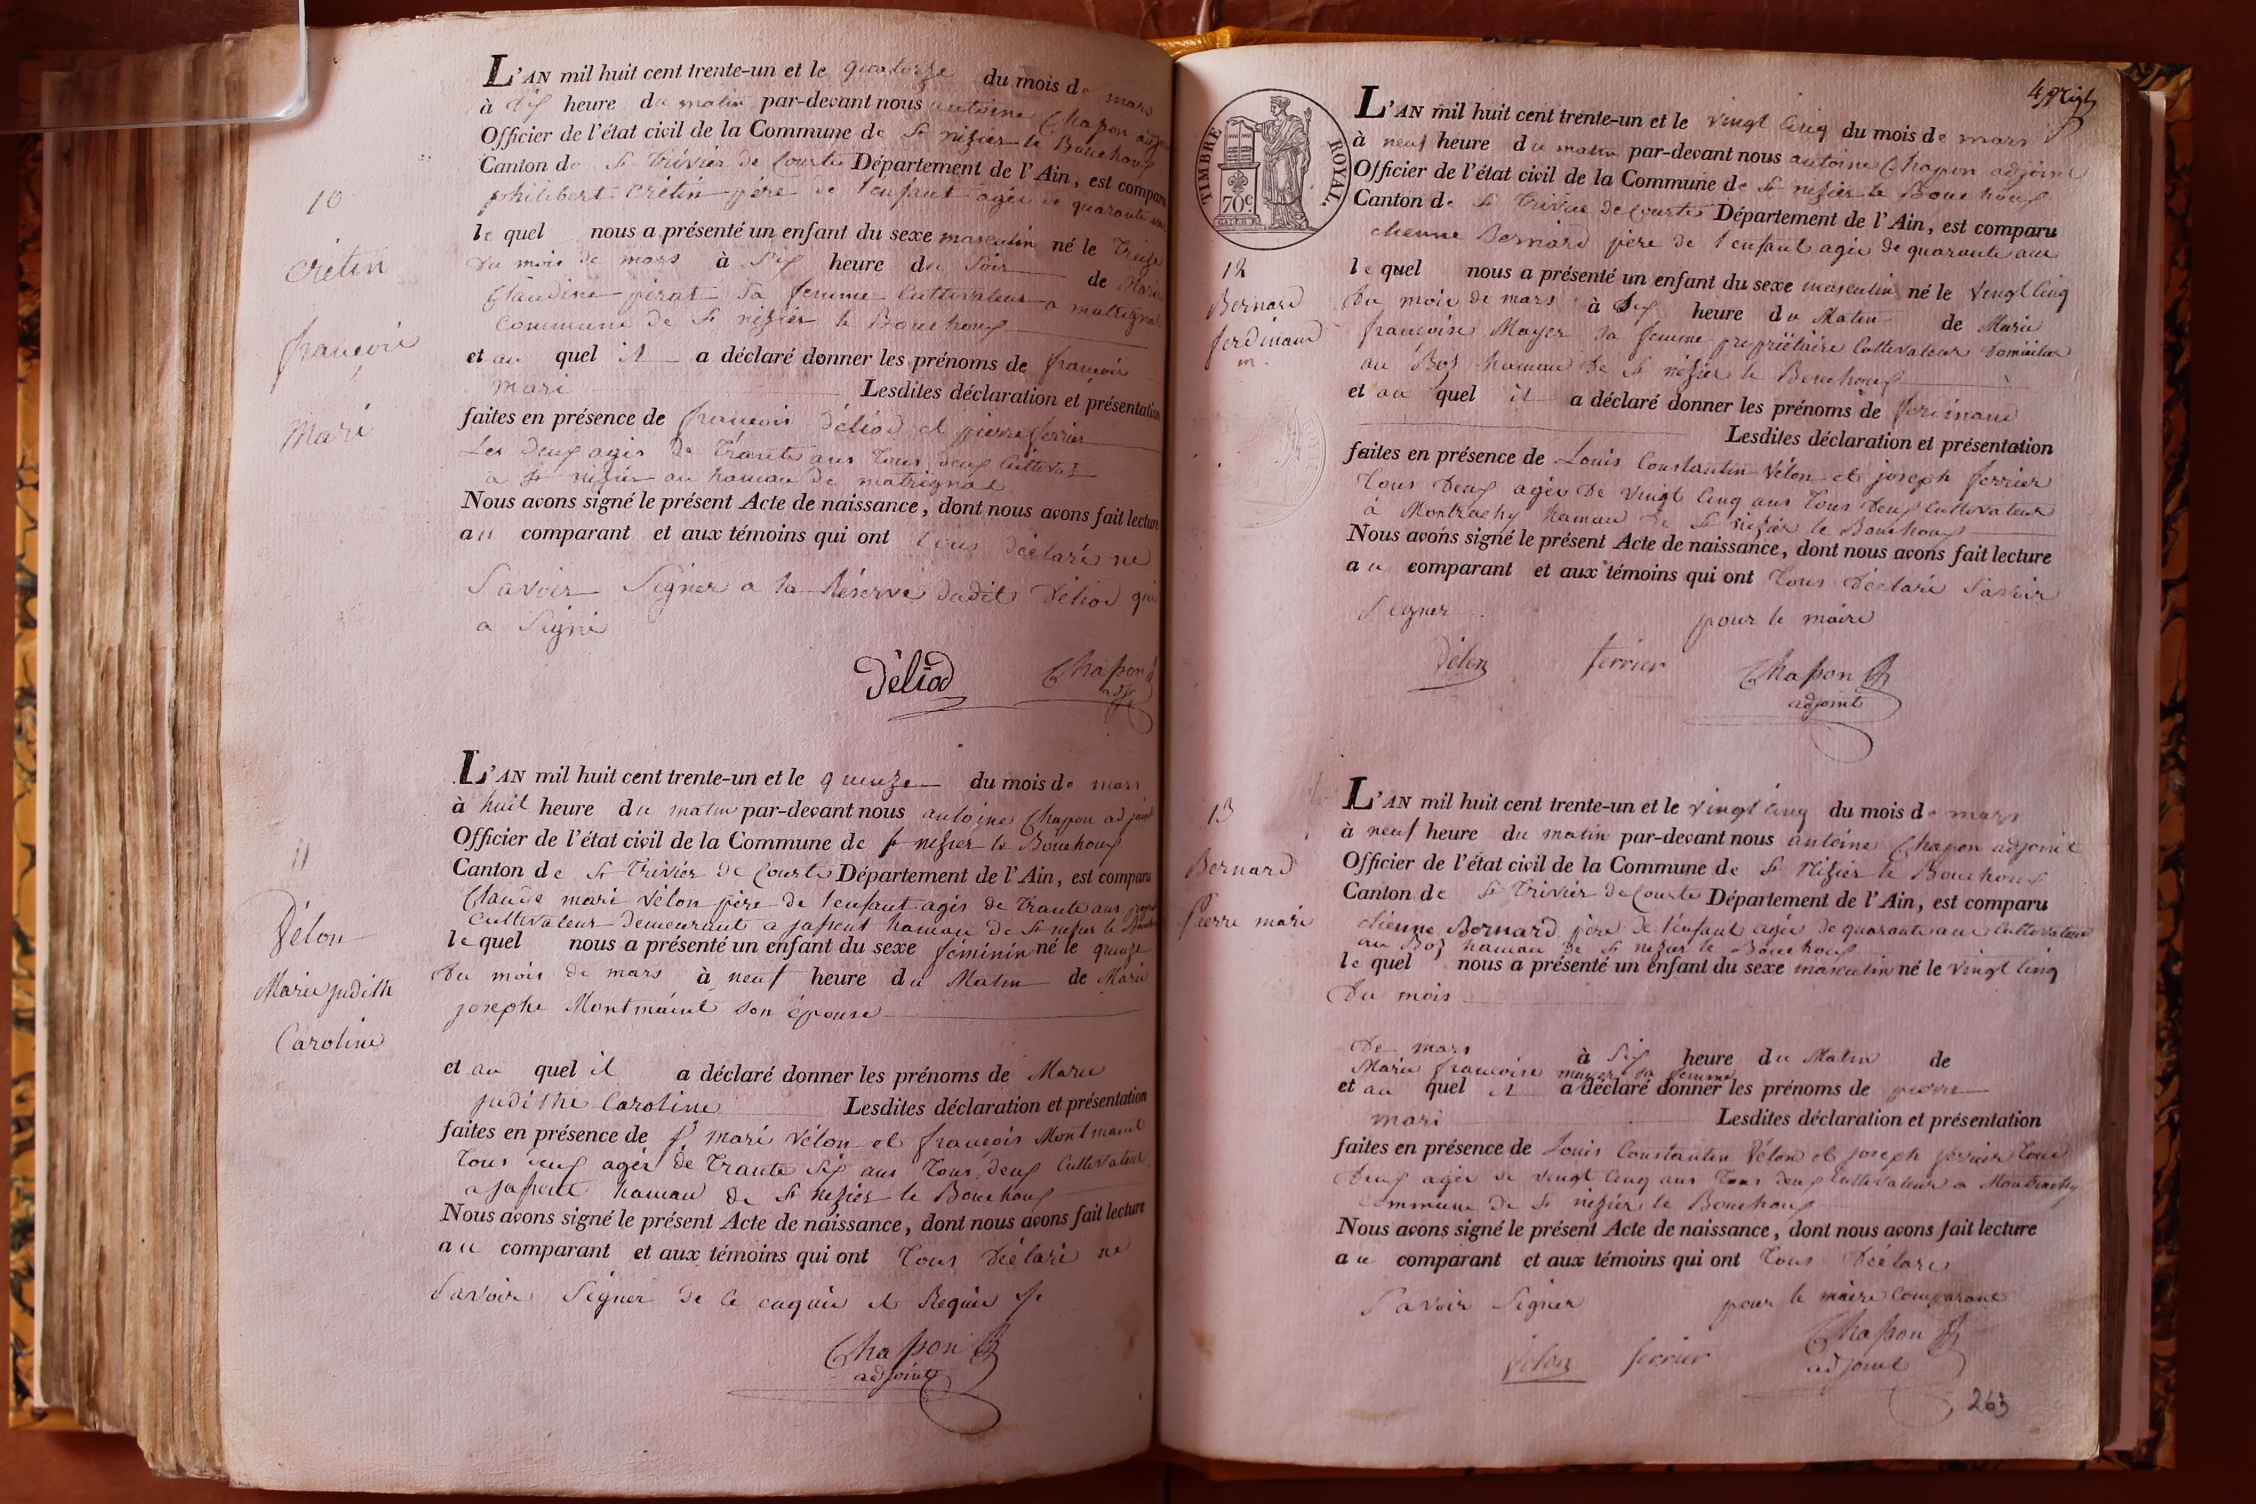 L'AN mil huit cent trente-un et le quatorze du mois de mars
à dix heure du matin par-devant nous antoine Chapon adj
Officier de l'état civil de la Commune de St nizier le Bouchoux
Canton de St Trivier de Courte Département de l'Ain, est comparu
philibert crétin père de l'enfant agée de quarante
le quel nous a présenté un enfant du sexe masculin né le treize
du mois de mars à Six heure du Soir de Marie
Claudine pirat sa femme Cultivateur a
commune de St nizier le Bouchoux
et au quel il a déclaré donner les prénoms de françois
mari Lesdites déclaration et présentation
faites en présence de françois Déliod et pierre ferrier
Les deux agés de trante ans tous deux Cultivat
a St nizier au hameau de matrignat
Nous avons signé le présent Acte de naissance, dont nous avons fait lecture
au comparant et aux témoins qui ont tous déclaré ne
Savoir Signer a la Réserve dudit Déliod qui
a Signé
Déliod Chapon
adj
10
crétin
françois
mari
L'AN mil huit cent trente-un et le quinze du mois de mars
à huit heure du matin par-devant nous antoine Chapon adjoint
Officier de l'état civil de la Commune de St nizier le Bouchoux
Canton de St Trivier de Courte Département de l'Ain, est comparu
Claude mari Vélon père de l'enfant agés de trante ans
cultivateur demeurant a hameau de St nizier le
le quel nous a présenté un enfant du sexe féminin né le quinze
du mois de mars à neuf heure du Matin de Marie
josephe Montmaint son épouse
et au quel il a déclaré donner les prénoms de Marie
judithe Caroline Lesdites déclaration et présentation
faites en présence de mari Vélon et françois Montmaint
tous deux agés de trante Six ans tous deux Cultivateur
a hameau de St nizier le Bouchoux
Nous avons signé le présent Acte de naissance, dont nous avons fait lecture
au comparant et aux témoins qui ont tous Déclaré ne
Savoir Signer de ce enquis et Requis
Chapon
adjoint
11
Vélon
Marie judith
Caroline
TIMBRE ROYAL.
70c.
L'AN mil huit cent trente-un et le vingt cinq du mois de mars
à neuf heure du matin par-devant nous antoine Chapon adjoint
Officier de l'état civil de la Commune de St nizier le Bouchoux
Canton de St Trivier de Courte Département de l'Ain, est comparu
etienne Bernard père de l'enfant agée de quarante ans
le quel nous a présenté un enfant du sexe masculin né le vingt cinq
du mois de mars à Six heure du Matin de Marie
françoise Mayer sa femme propriétaire Cultivateur
au Boz hameau de St nizier le Bouchoux
et au quel il a déclaré donner les prénoms de ferdinand
Lesdites déclaration et présentation
faites en présence de Louis Constantin Vélon et joseph ferrier
tous Deux agée de vingt Cinq ans tous Deux Cultivateur
à hameau de St nizier le Bouchoux
Nous avons signé le présent Acte de naissance, dont nous avons fait lecture
au comparant et aux témoins qui ont tous Déclaré Savoir
Signer pour le maire
Vélon ferrier Chapon
adjoint
12
Bernard
ferdinand
m.
L'AN mil huit cent trente-un et le vingt cinq du mois de mars
à neuf heure du matin par-devant nous antoine Chapon adjoint
Officier de l'état civil de la Commune de St Nizier le Bouchoux
Canton de St Trivier de Courte Département de l'Ain, est comparu
etienne Bernard père de l'enfant agée de quarante ans Cultivateur
au Boz hameau de St nizier le Bouchoux
le quel nous a présenté un enfant du sexe masculin né le vingt cinq
Du mois
De mars à Six heure du Matin de
Marie françoise mayer sa femme
et au quel il a déclaré donner les prénoms de pierre
mari Lesdites déclaration et présentation
faites en présence de Louis Constantin Vélon et joseph ferrier tous
Deux agée de vingt Cinq ans tous deux Cultivateur a
Commune de St nizier le Bouchoux
Nous avons signé le présent Acte de naissance, dont nous avons fait lecture
au comparant et aux témoins qui ont tous Déclaré
Savoir Signer pour le maire comparant
Vélon ferrier Chapon
adjoint
13
Bernard
pierre mari
263